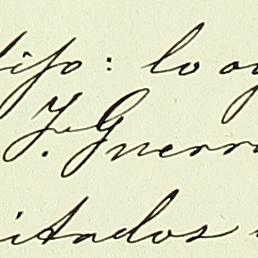 lijo: lo oy
J. Guerr
itados